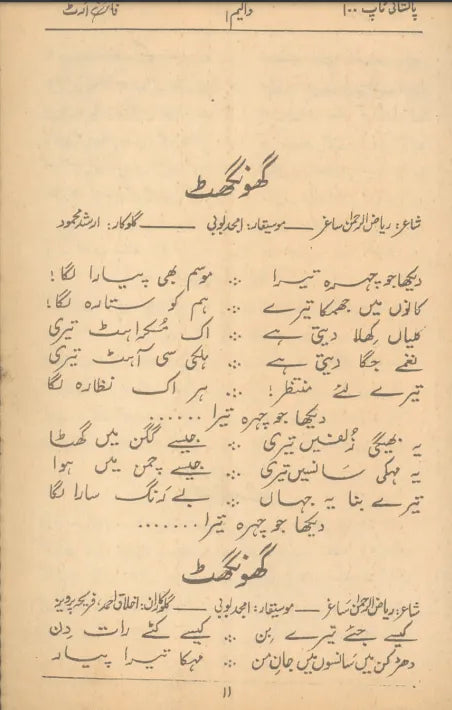 پاکستانی ٹاپ ۱۰۰ والیم ۱ فائن آرٹ
گھونگھٹ
شاعر: ریاض الرحمٰن ساغر — موسیقار: امجد بوبی — گلوکار: ارشد محمود
دیکھا جو چہرہ تیرا ؞ موسم بھی پیارا لگا!
کانوں میں جھمکا تیرے ؞ ہم کو ستارہ لگا!
کلیاں کھلا دیتی ہے ؞ اک مُسکراہٹ تیری
نغمے جگا دیتی ہے ؞ ہلکی سی آہٹ تیری
تیرے لئے منتظر! ؞ ہر اک نظارہ لگا
دیکھا جو چہرہ تیرا ......
یہ بھیگی زُلفیں تیری ؞ جیسے گگن میں گھٹا
یہ مہکی سانسیں تیری ؞ جیسے چمن میں ہوا
تیرے بنا یہ جہاں ؞ بے رَنگ سارا لگا
دیکھا جو چہرہ تیرا .......
گھونگھٹ
شاعر: ریاض الرحمٰن ساغر — موسیقار: امجد بوبی — گلوکاران: اخلاق احمد، فریحہ پرویز
کیسے جئے تیرے بِن ؞ کیسے کٹے رات دِن
دھڑکن میں سانسوں میں جانِ من ؞ مہکا تیرا پیار
۱۱